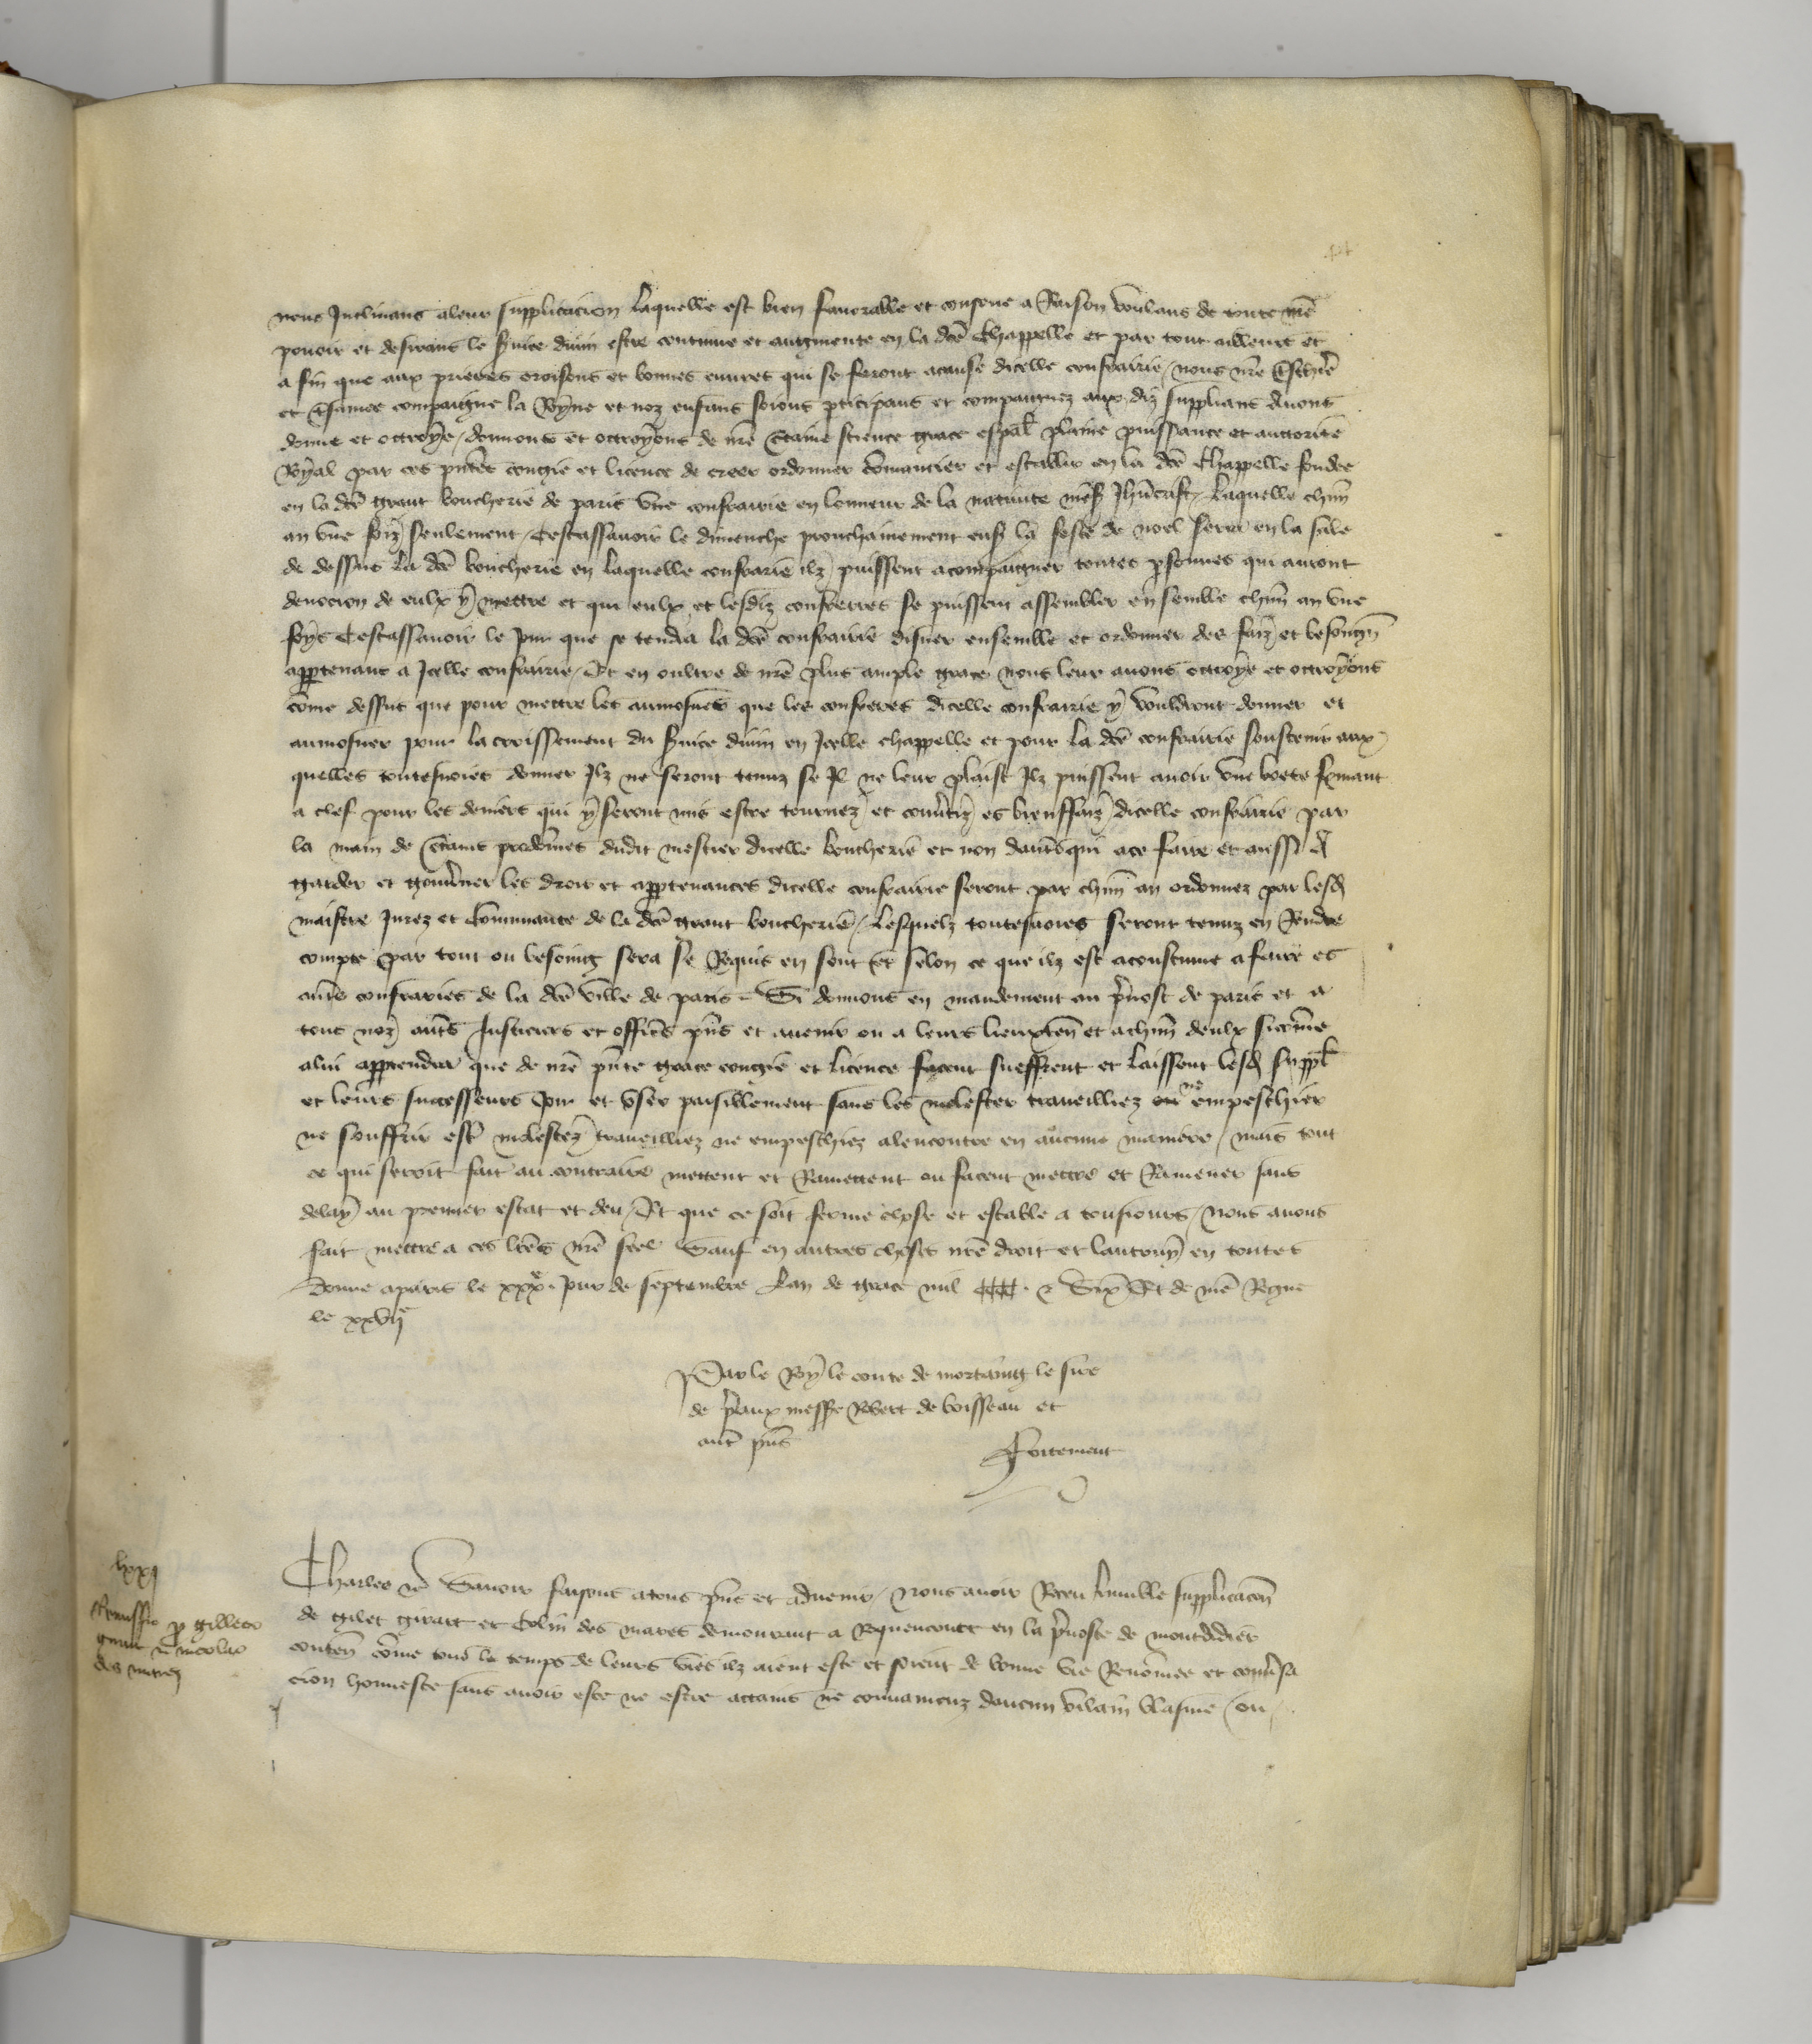 nous Inclinans aleur supplicacion laquelle est bien favorable et consone a Raison voulans de toute nre
povoir et desirans le service divin estre continue et augmente en la dce Chappelle et par tout ailleurs et
a fin que aux prieres oroisons et bonnes euvres qui se feront acause dicelle confrairie / nous nre treschiere
et tresamee compaigne la Royne et noz enfans soions participans et compaignez aux diz suppliants Avons
donne et octroye / donnons et octroyons de nre certaine science grace espal plaine puissance et auctorite
Royal par ces pntes congie et licence de creer ordonner comancier et establir en la dce Chappelle fondee
en la dce grant boucherie de paris une confrairie en lonneur de la nativite nres Jhucrist / laquelle chun
an une foiz seulement / Cestassavoir le dimenche prouchainement ens la feste de noel sera en la sale
de dessus la dce boucherie en laquelle confrarie ilz puissent acompaigner toutes psonnes qui auront
devocion de eulx y mettre et qui eulx et lesdiz confreres se puissent assembler en semble chun an une
foys Cestassavoir le jour que se tendra la dce confrairie disner ensemble et ordonner des faiz et besongn
appartenans a Icelle confrairie / Et en oultre de nre plus ample grace nous leur avons octroye et octroyons
come dessus que pour mettre les aumosnes que les confreres dicelle confrairie y vouldront donner et
aumosner pour lacroissement du svice divin en Icelle chappelle et pour la dce confrairie soustenir aux
quelles toutesvoies donner Ilz ne seront tenuz se Il ne leur plaist Ilz puissent avoir une boete fermant
a clef pour les deniers qui y seront mis estre tournez et convtiz es bienffaiz dicelle confrairie par
la main de certains preudomes dudit mestier dicelle boucherie et non dautres qui ace faire et aussi a
garder et gouverner les droiz et appartenances dicelle confrairie seront par chun an ordonnez par lesd
maistre Jurez et Communaute de la dce grant boucherie / lesquelz toutesvoies seront tenuz en Rendre
compte par tout ou besoing sera se Requis en sont et selon ce que ilz est acoustume a faire es
autres confraries de la dce ville de paris - Si donnons en mandement au prevost de paris et a
tous noz autres Justiciers et officiers pns et avenir ou a leurs lieuxten et achun deulx sicome
alui appartendra que de nre pnte grace congie et licence facent sueffrent et laissent lesd suppl
et leurs successeurs Joir et user paisiblement sans les molester traveilliez ou ne empeschier
ne souffrir estre molestez traveilliez ne empeschiez alencontre en aucune maniere / mais tout
ce qui seroit fait au contraire mettent et Ramettent ou facent mettre et Ramener sans
delay au premier estat et deu / Et que ce soit ferme chose et estable a tousiours / nous avons
fait mettre a ces lres nre seel Sauf en autres choses nre droit et lautruy en toutes
Donne aparis le xxxe jour de septembre Lan de grace mil cccc. & Six Et de nre Regne
le xxvije
Par le Roy le conte de mortaing le sire
de preaux messe Robert de boisseau et
autres pns
Fortement
lxxj
Remissio pro gilleto
girart & nicolao
des marez
Charles &c Savoir faisons atous pns et advenir / Nous avoir Receu lumble supplicacion
de gilet girart et Colin des mares demourant a Roquencourt en la prevoste de montdidier
conten come tout le temps de leurs vies ilz aient este et soient de bonne vie Renomee et conversa
cion honneste sans avoir este ne estre attains ne convaincuz daucun vilain blasme / ou